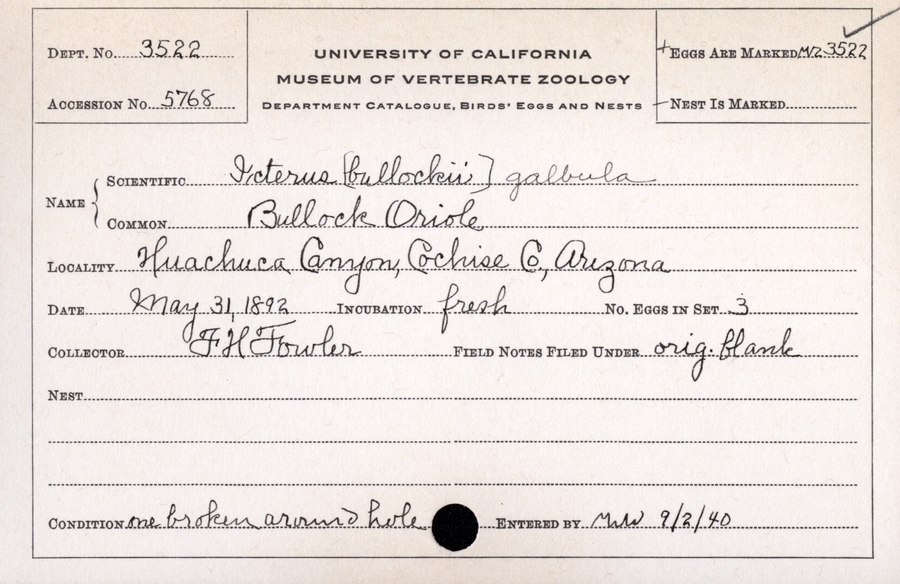 DEPT. No. 3522
ACCESSION No. 5768
UNIVERSITY OF CALIFORNIA
MUSEUM OF VERTEBRATE ZOOLOGY
DEPARTMENT CATALOGUE, BIRDS' EGGS AND NESTS
+EGGS ARE MARKED MVZ 3522
–NEST IS MARKED
NAME
SCIENTIFIC Icterus [bullockii] galbula
COMMON Bullock Oriole
LOCALITY Huachuca Canyon, Cochise Co., Arizona
DATE May 31, 1892 INCUBATION fresh NO. EGGS IN SET 3
COLLECTOR F H Fowler FIELD NOTES FILED UNDER orig. blank
NEST
CONDITION one broken around hole ENTERED BY 9/2/40